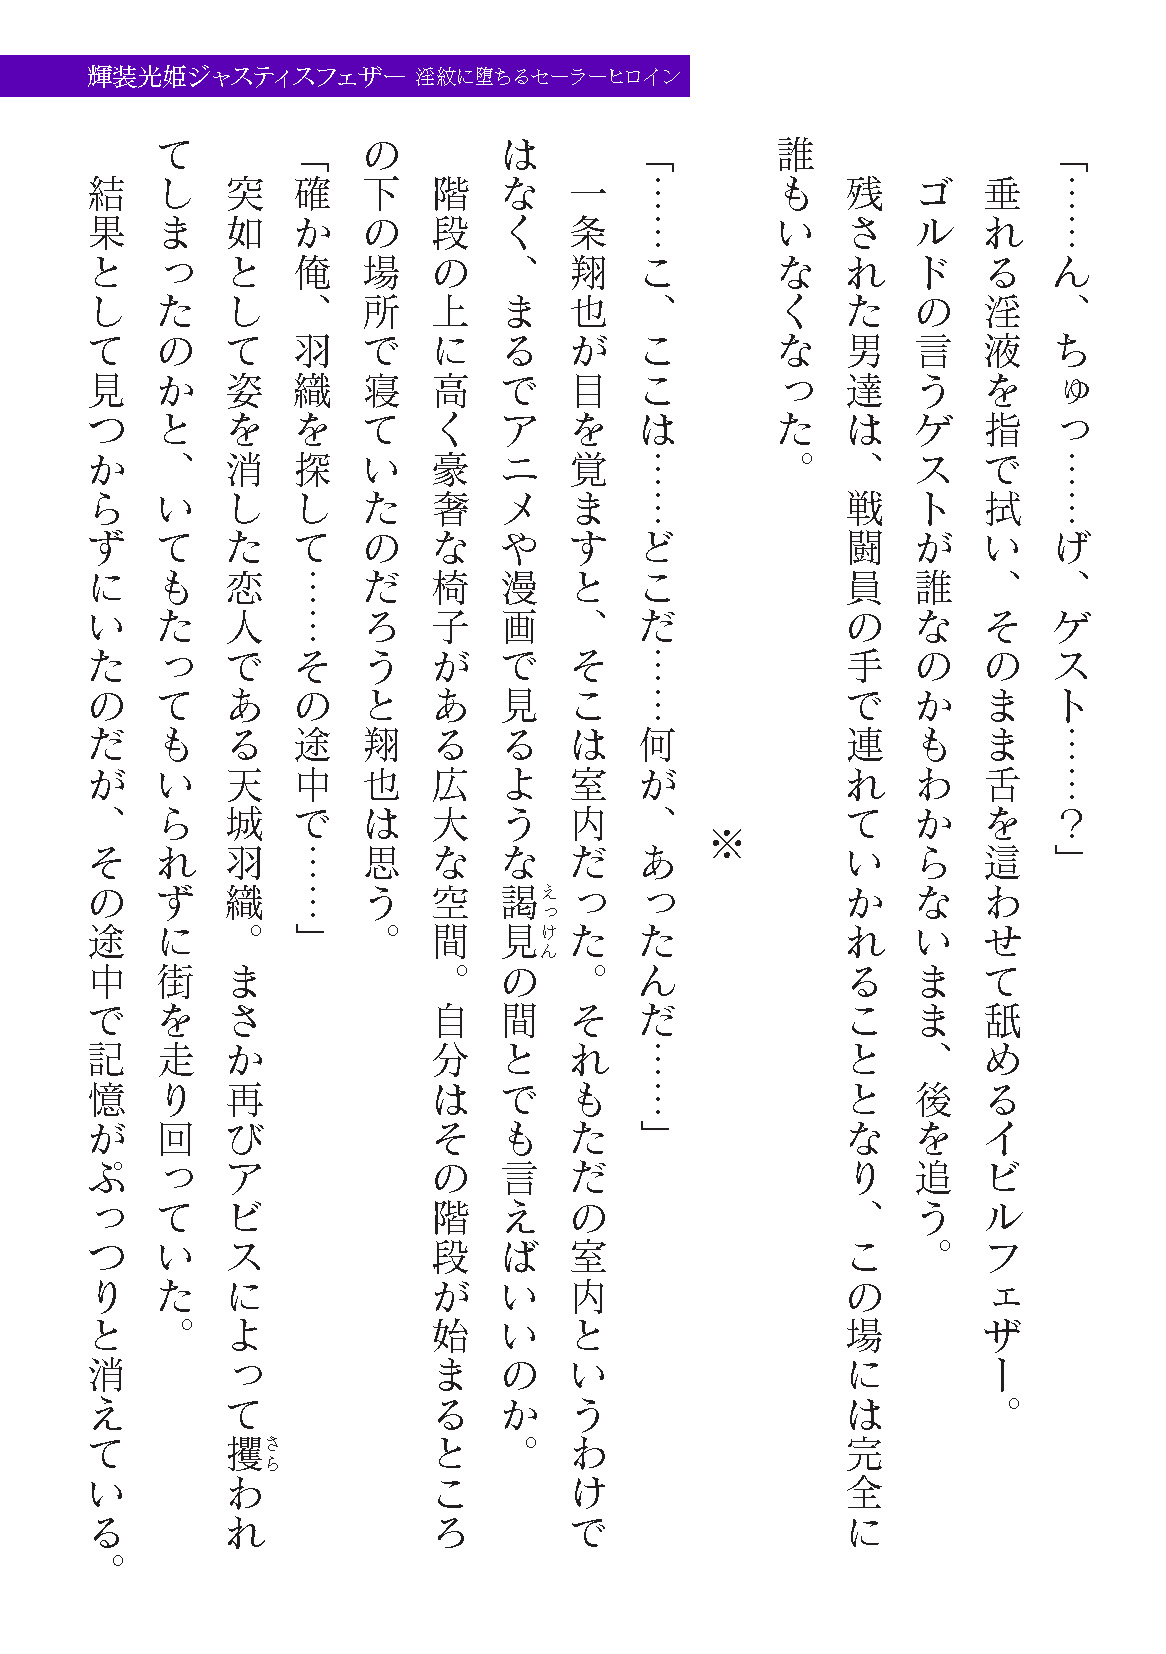 輝装光姫ジャスティスフェザー 淫紋に堕ちるセーラーヒロイン
「……ん、ちゅっ……げ、ゲスト……？」
垂れる淫液を指で拭い、そのまま舌を這わせて舐めるイビルフェザー。
ゴルドの言うゲストが誰なのかもわからないまま、後を追う。
残された男達は、戦闘員の手で連れていかれることとなり、この場には完全に
誰もいなくなった。
※
「……こ、ここは……どこだ……何が、あったんだ……」
一条翔也が目を覚ますと、そこは室内だった。それもただの室内というわけで
はなく、まるでアニメや漫画で見るような謁見えっけんの間とでも言えばいいのか。
階段の上に高く豪奢な椅子がある広大な空間。自分はその階段が始まるところ
の下の場所で寝ていたのだろうと翔也は思う。
「確か俺、羽織を探して……その途中で……」
突如として姿を消した恋人である天城羽織。まさか再びアビスによって攫さらわれ
てしまったのかと、いてもたってもいられずに街を走り回っていた。
結果として見つからずにいたのだが、その途中で記憶がぷっつりと消えている。